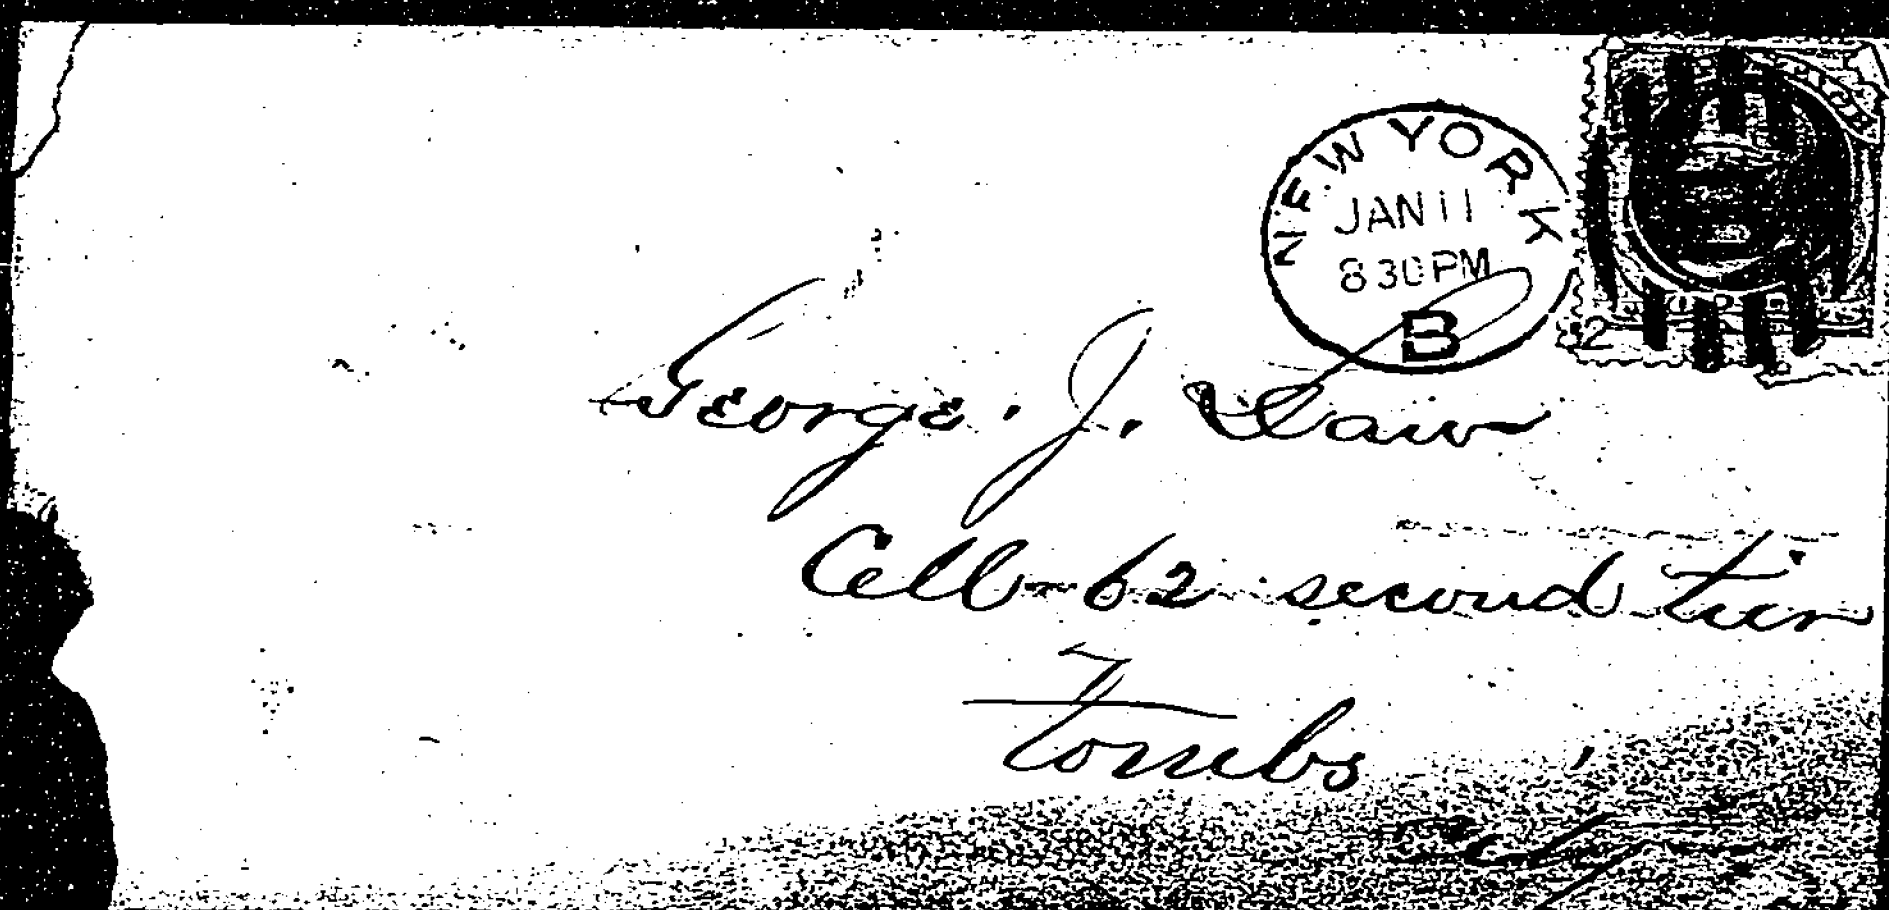 NEW YORK
JAN 11
830PM
B
George. J. Law
Cell 62 second tier
Tombs